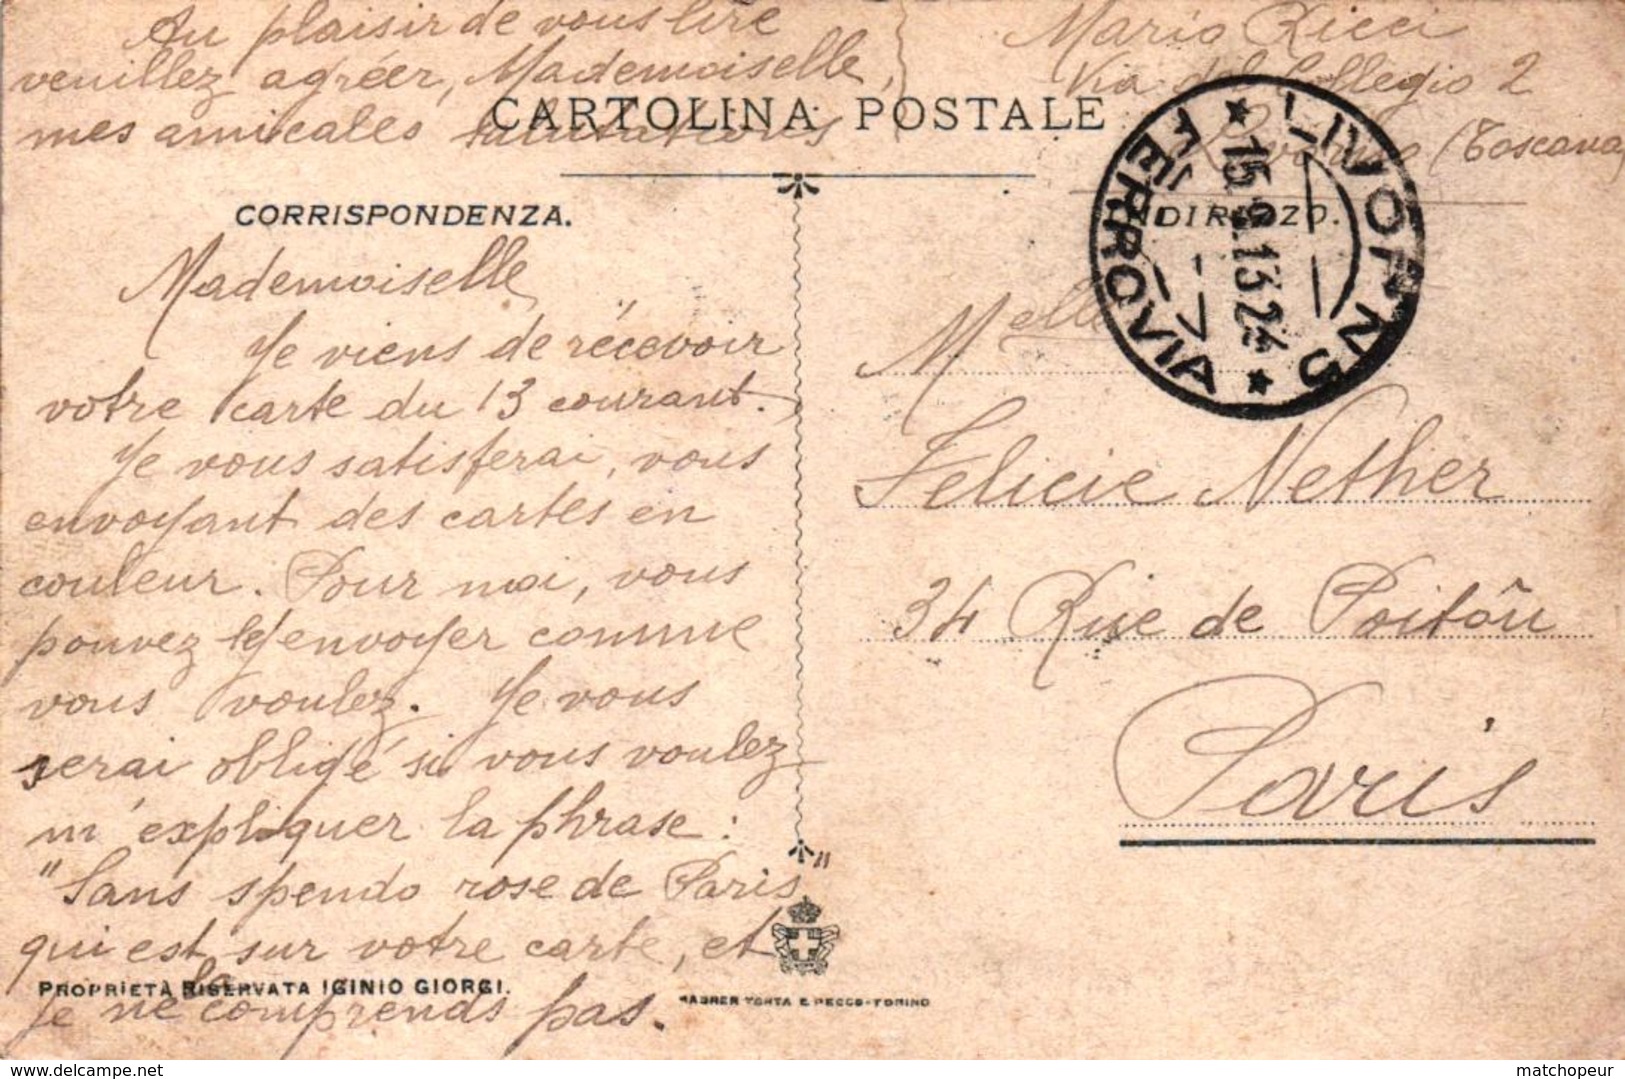 Au plaisir de vous lire
veuillez agréer, Mademoiselle,
mes amicales salutations
Mario Ricci
Via del Collegio 2
Livorno (Toscana)
CARTOLINA POSTALE
CORRISPONDENZA.
INDIRIZZO.
LIVORNO
FERROVIA
15.9.13.24
Mademoiselle
Je viens de récevoir
votre carte du 13 courant.
Je vous satisferai, vous
envoyant des cartes en
couleur. Pour moi, vous
pouvez envoyer comme
vous voulez. Je vous
serai obligé si vous voulez
m'expliquer la phrase:
"Sans spendo rose de Paris"
qui est sur votre carte, et
je ne la comprends pas.
Melle
Felicie Nether
34 Rue de Poitôu
Paris
PROPRIETÀ RISERVATA IGINIO GIORGI.
matchopeur